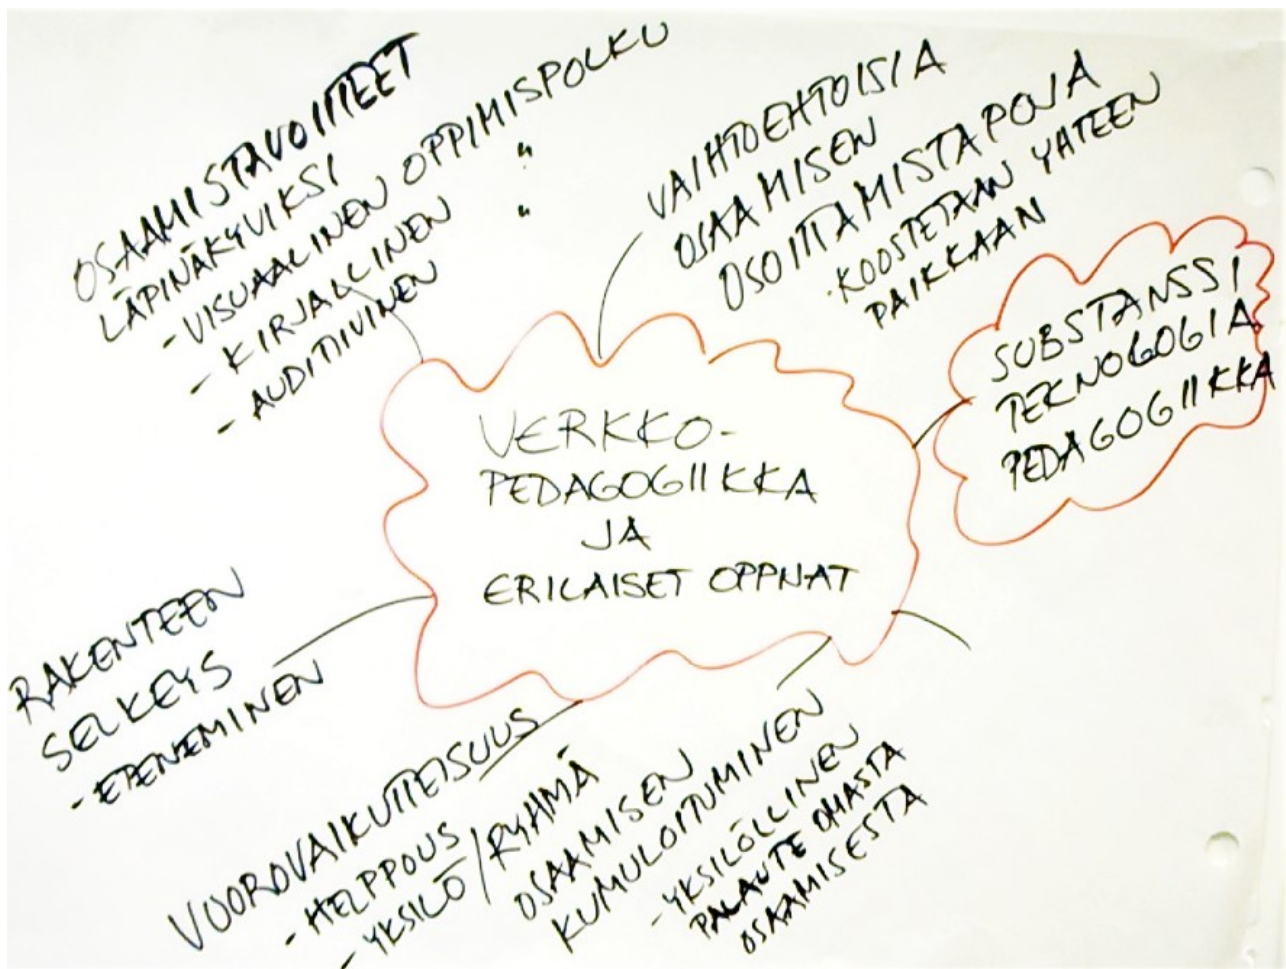 OSAAMISTAVOITTEET
LÄPINÄKYVIKSI
- VISUAALINEN OPPIMISPOLKU
- KIRJALLINEN "
- AUDITIIVINEN "
VAIHTOEHTOISIA
OSAAMISEN
OSOITTAMISTAPOJA
- KOOSTETAAN YHTEEN
PAIKKAAN
SUBSTANSSI
TEKNOLOGIA
PEDAGOGIIKKA
VERKKO-
PEDAGOGIIKKA
JA
ERILAISET OPPIJAT
RAKENTEEN
SELKEYS
- ETENEMINEN
VUOROVAIKUTTEISUUS
- HELPPOUS
- YKSILÖ/RYHMÄ
OSAAMISEN
KUMULOITUMINEN
- YKSILÖLLINEN
PALAUTE OMASTA
OSAAMISESTA